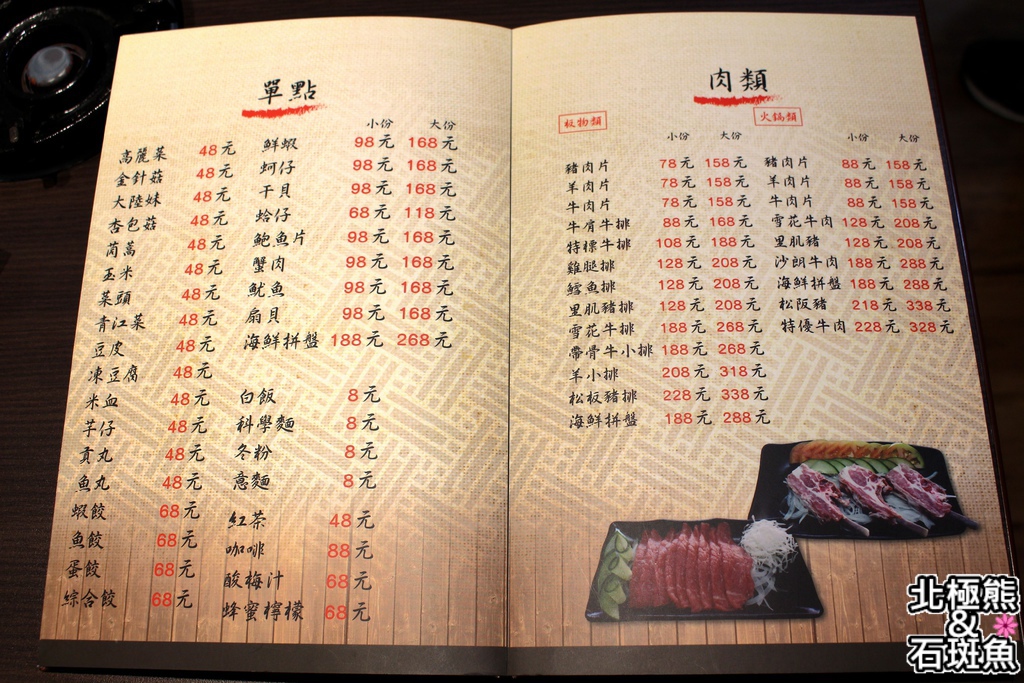 單點
高麗菜 48元
金針菇 48元
大陸妹 48元
杏包菇 48元
茼蒿 48元
玉米 48元
菜頭 48元
青江菜 48元
豆皮 48元
凍豆腐 48元
米血 48元
芋仔 48元
貢丸 48元
魚丸 48元
蝦餃 68元
魚餃 68元
蛋餃 68元
綜合餃 68元
小份 大份
鮮蝦 98元 168元
蚵仔 98元 168元
干貝 98元 168元
蛤仔 68元 118元
鮑魚片 98元 168元
蟹肉 98元 168元
魷魚 98元 168元
扇貝 98元 168元
海鮮拼盤 188元 268元
白飯 8元
科學麵 8元
冬粉 8元
意麵 8元
紅茶 48元
咖啡 88元
酸梅汁 68元
蜂蜜檸檬 68元
肉類
板物類
小份 大份
豬肉片 78元 158元
羊肉片 78元 158元
牛肉片 78元 158元
牛肩牛排 88元 168元
特標牛排 108元 188元
雞腿排 128元 208元
鱈魚排 128元 208元
里肌豬排 128元 208元
雪花牛排 188元 268元
帶骨牛小排 188元 268元
羊小排 208元 318元
松板豬排 228元 338元
海鮮拼盤 188元 288元
火鍋類
小份 大份
豬肉片 88元 158元
羊肉片 88元 158元
牛肉片 88元 158元
雪花牛肉 128元 208元
里肌豬 128元 208元
沙朗牛肉 188元 288元
海鮮拼盤 188元 288元
松阪豬 218元 338元
特優牛肉 228元 328元
北極熊
&
石斑魚